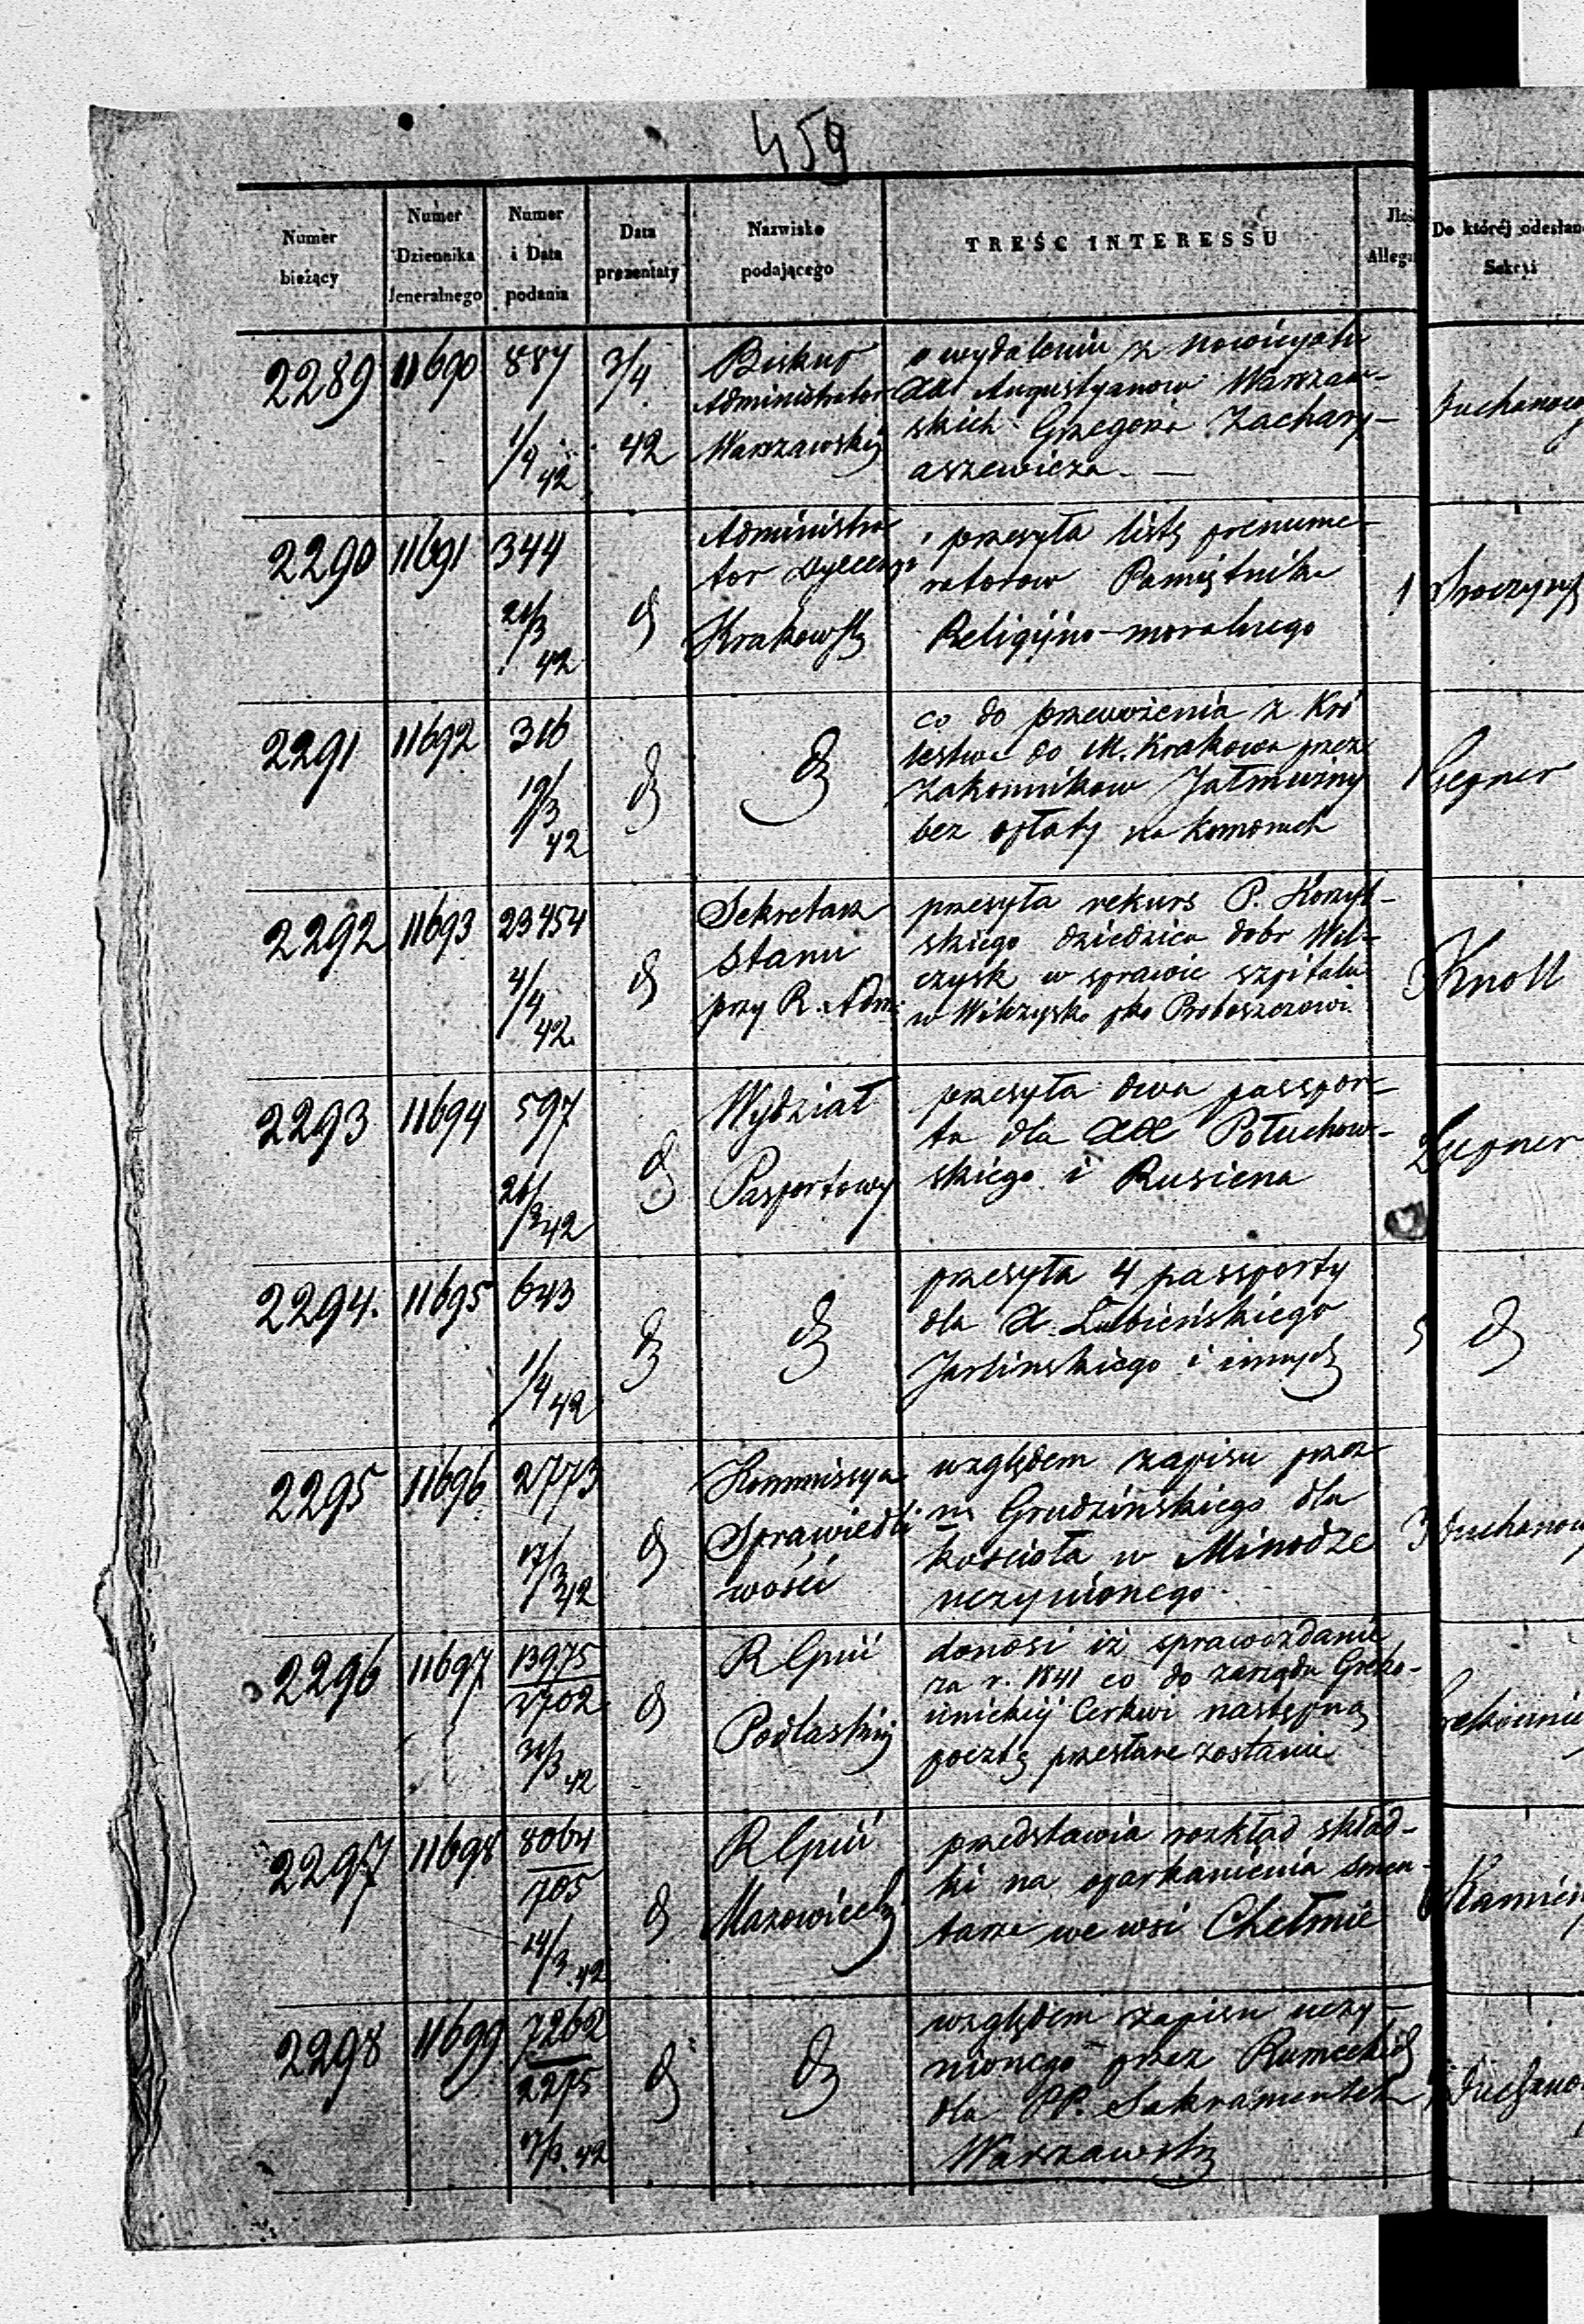 459
Numer bieżący
Numer Dziennika Jeneralnego
Numer i Data podania
Data prezentaty
Nazwisko podającego
TREŚĆ INTERESSU
Do któréj odesłano Sekcyi
2289 11690 887 1/4 42
3/4 42
Biskup
Administrator
Warszawskij
o wydaleniu z nowicyatu
XX Augustyanow Warszaw-
skich Grzegorza Zachary-
aszewicza. —
2290 11691 344
42
Administra
tor Dyecezyi
przesyła listę prenume-
ratorow Pamiętnika
Religijno-moralnego
1
2291 11692 316 19/3 42
co do przewożenia z Kró
lestwa do M. Krakowa przez
zakonnikow Jałmużny
bez opłaty na komorach
1 Gepner
2292 11693 23454 4/4 42.
Sekretarz
Stanu
przy R. Adm:
przesyła rekurs P.
skiego dziedzica dobr Wil-
czysk w sprawie szpitala
w Wilczysk pko Proboszczowi.
3 Knoll
2293 11694 597 42
Wydział
Pasportowy
przesyła dwa passpor-
ta dla XX Połuchow-
skiego i Rusiena
2 Gepner
2294. 11695 643 1/4 42
przesyła 4 passporty
dla X. Łubieńskiego
Jarlinskiego i innych
5
2295 11696 2773 17/3 42
Kommissya
Sprawiedli
wości
względem zapisu przez
Grudzińskiego dla
kościoła w Minodze
uczynionego.
3
2296 11697 13975 2702 42
R Gpni
Podlaskiij
donosi iż sprawozdanie
za r. 1841 co do zarządu Greko-
unickiij Cerkwi następną
pocztą przesłane zostanie
2297 11698 8064 705 14/3. 42
R Gpni
Mazowiecki
przedstawia rozkład skład-
ki na oparkanienia smen-
tarza we wsi Chełmie
2298 11699 7262 2275 17/3. 42
względem zapisu uczy-
nionego przez
dla PP. Sakramentek
Warszawsk